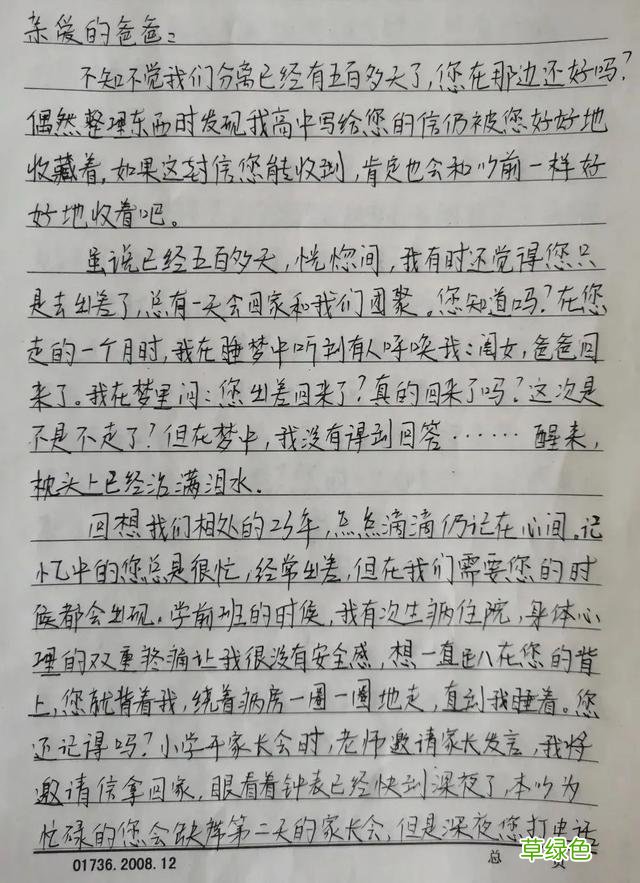 亲爱的爸爸：
不知不觉我们分离已经有五百多天了，您在那边还好吗？
偶然整理东西时发现我高中写给您的信仍被您好好地
收藏着，如果这封信您能收到，肯定也会和以前一样好
好地收着吧。
虽说已经五百多天，恍惚间，我有时还觉得您只
是去出差了，总有一天会回家和我们团聚。您知道吗？在您
走的一个月时，我在睡梦中听到有人呼唤我：闺女，爸爸回
来了。我在梦里问：您出差回来了？真的回来了吗？这次是
不是不走了？但在梦中，我没有得到回答……醒来，
枕头上已经沾满泪水。
回想我们相处的23年，点点滴滴仍记在心间。记
忆中的您总是很忙，经常出差，但在我们需要您的时
候都会出现。学前班的时候，我有次生病住院，身体心
理的双重疼痛让我很没有安全感，想一直趴在您的背
上，您就背着我，绕着病房一圈一圈地走，直到我睡着。您
还记得吗？小学开家长会时，老师邀请家长发言，我将
邀请信拿回家，眼看着钟表已经快到深夜了，本以为
忙碌的您会缺席第二天的家长会，但是深夜您打电话
01736.2008.12
总 页
草绿色